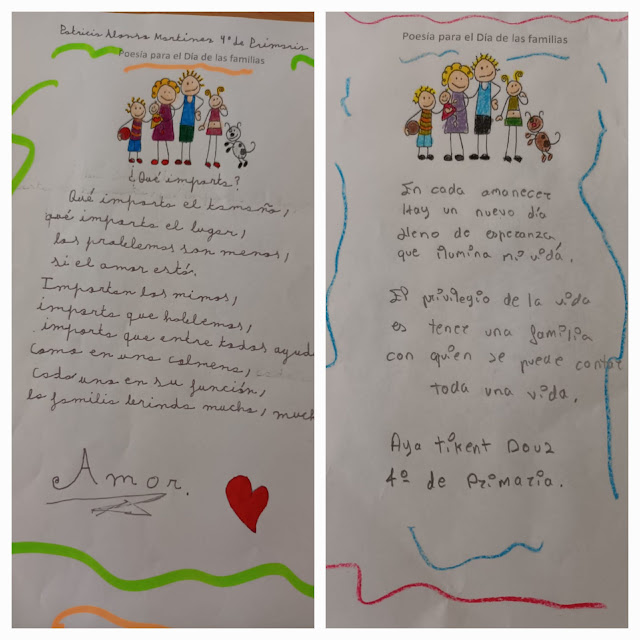 Patricia Alonso Martínez 4º de Primaria
Poesía para el Día de las familias
¿Qué importa?
Qué importa el tamaño,
qué importa el lugar,
los problemas son menos,
si el amor está.
Importan los mimos,
importa que hablemos,
importa que entre todos ayude
Como en una colmena,
cada uno en su función,
la familia brinda mucho, much
Amor.
Poesía para el Día de las familias
En cada amanecer
Hay un nuevo día
lleno de esperanza
que ilumina mi vidá.
El privilegio de la vida
es tener una familia
con quien se puede contar
toda una vida.
Aya tikent Douz
4º de Primaria.